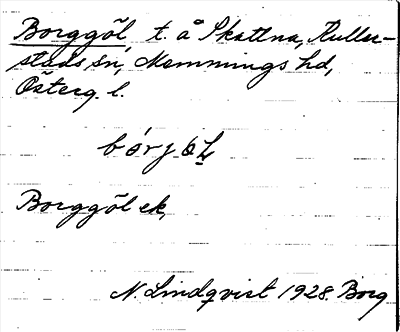 Borggöl t. å Skattna, Kuller-
stads sn, Memmings hd,
Österg. l.
bórjöL
Borggöl ek,
N. Lindqvist 1928. Borg